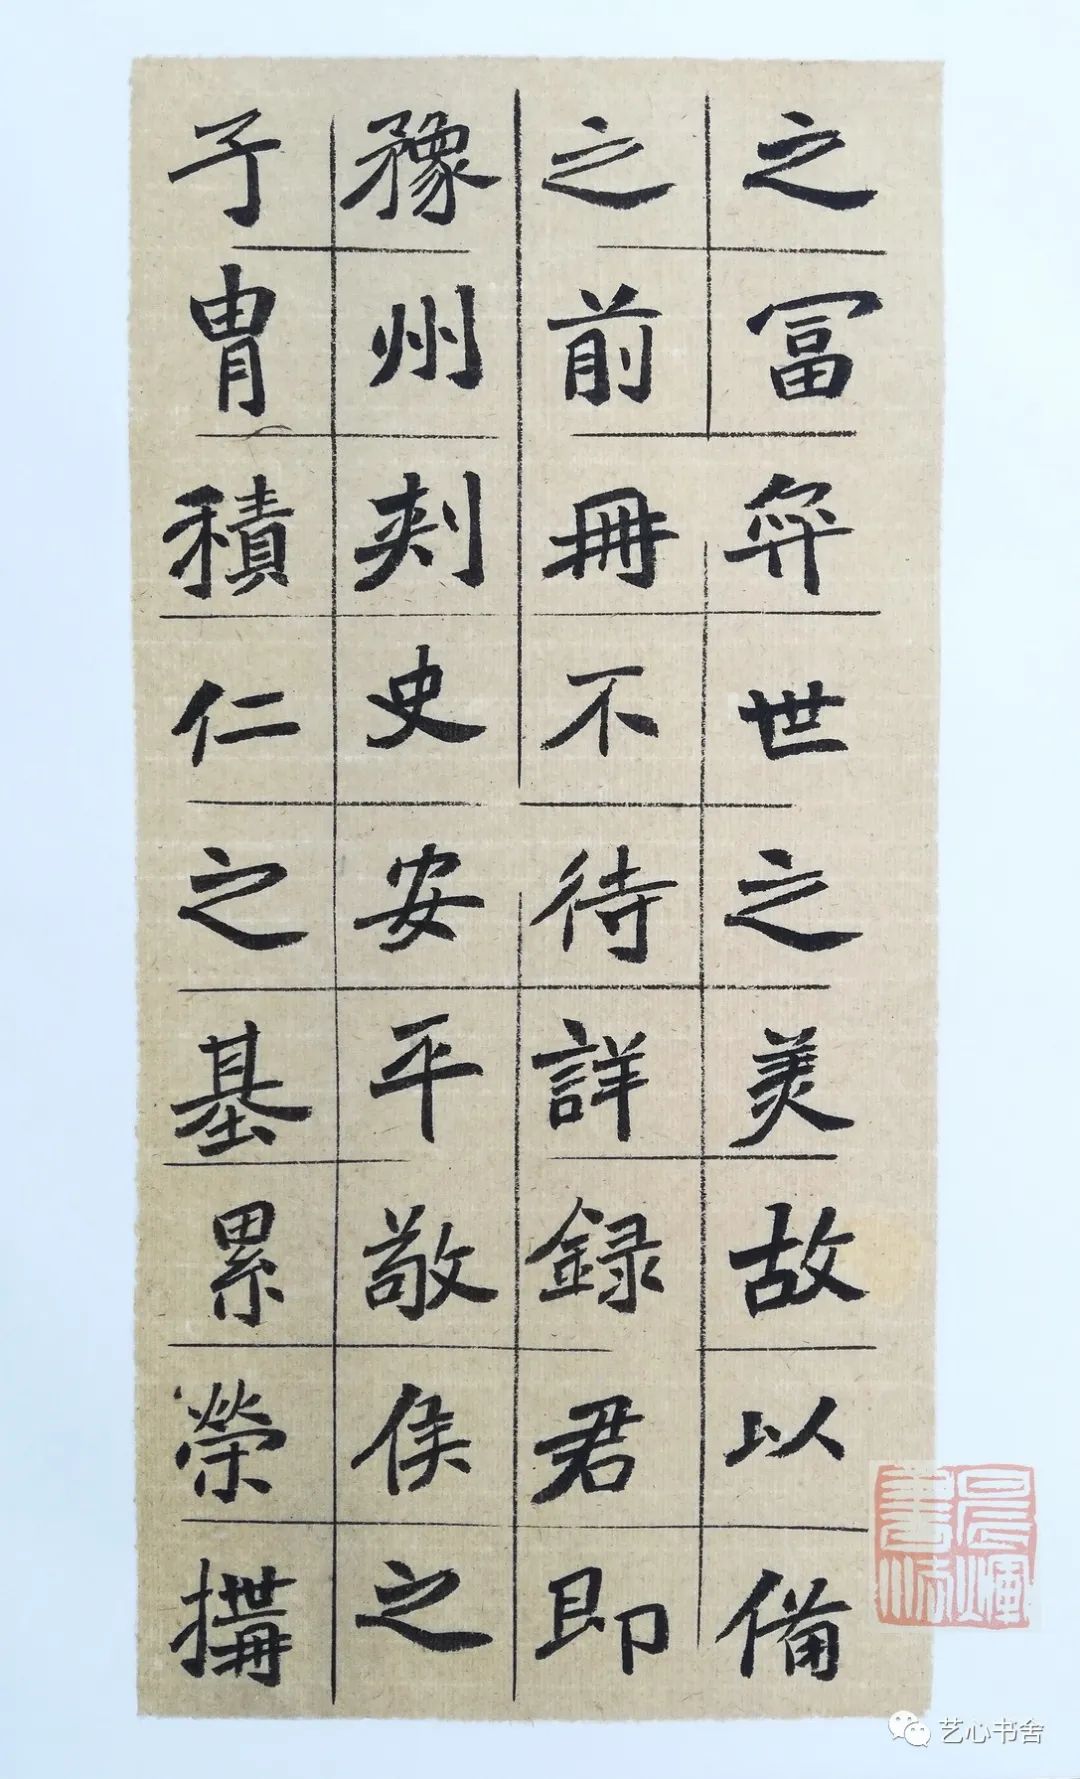 之冨弈世之美故以備
之前冊不待詳録君即
豫州刾史安平敬侯之
子胄積仁之基累榮搆
艺心书舍